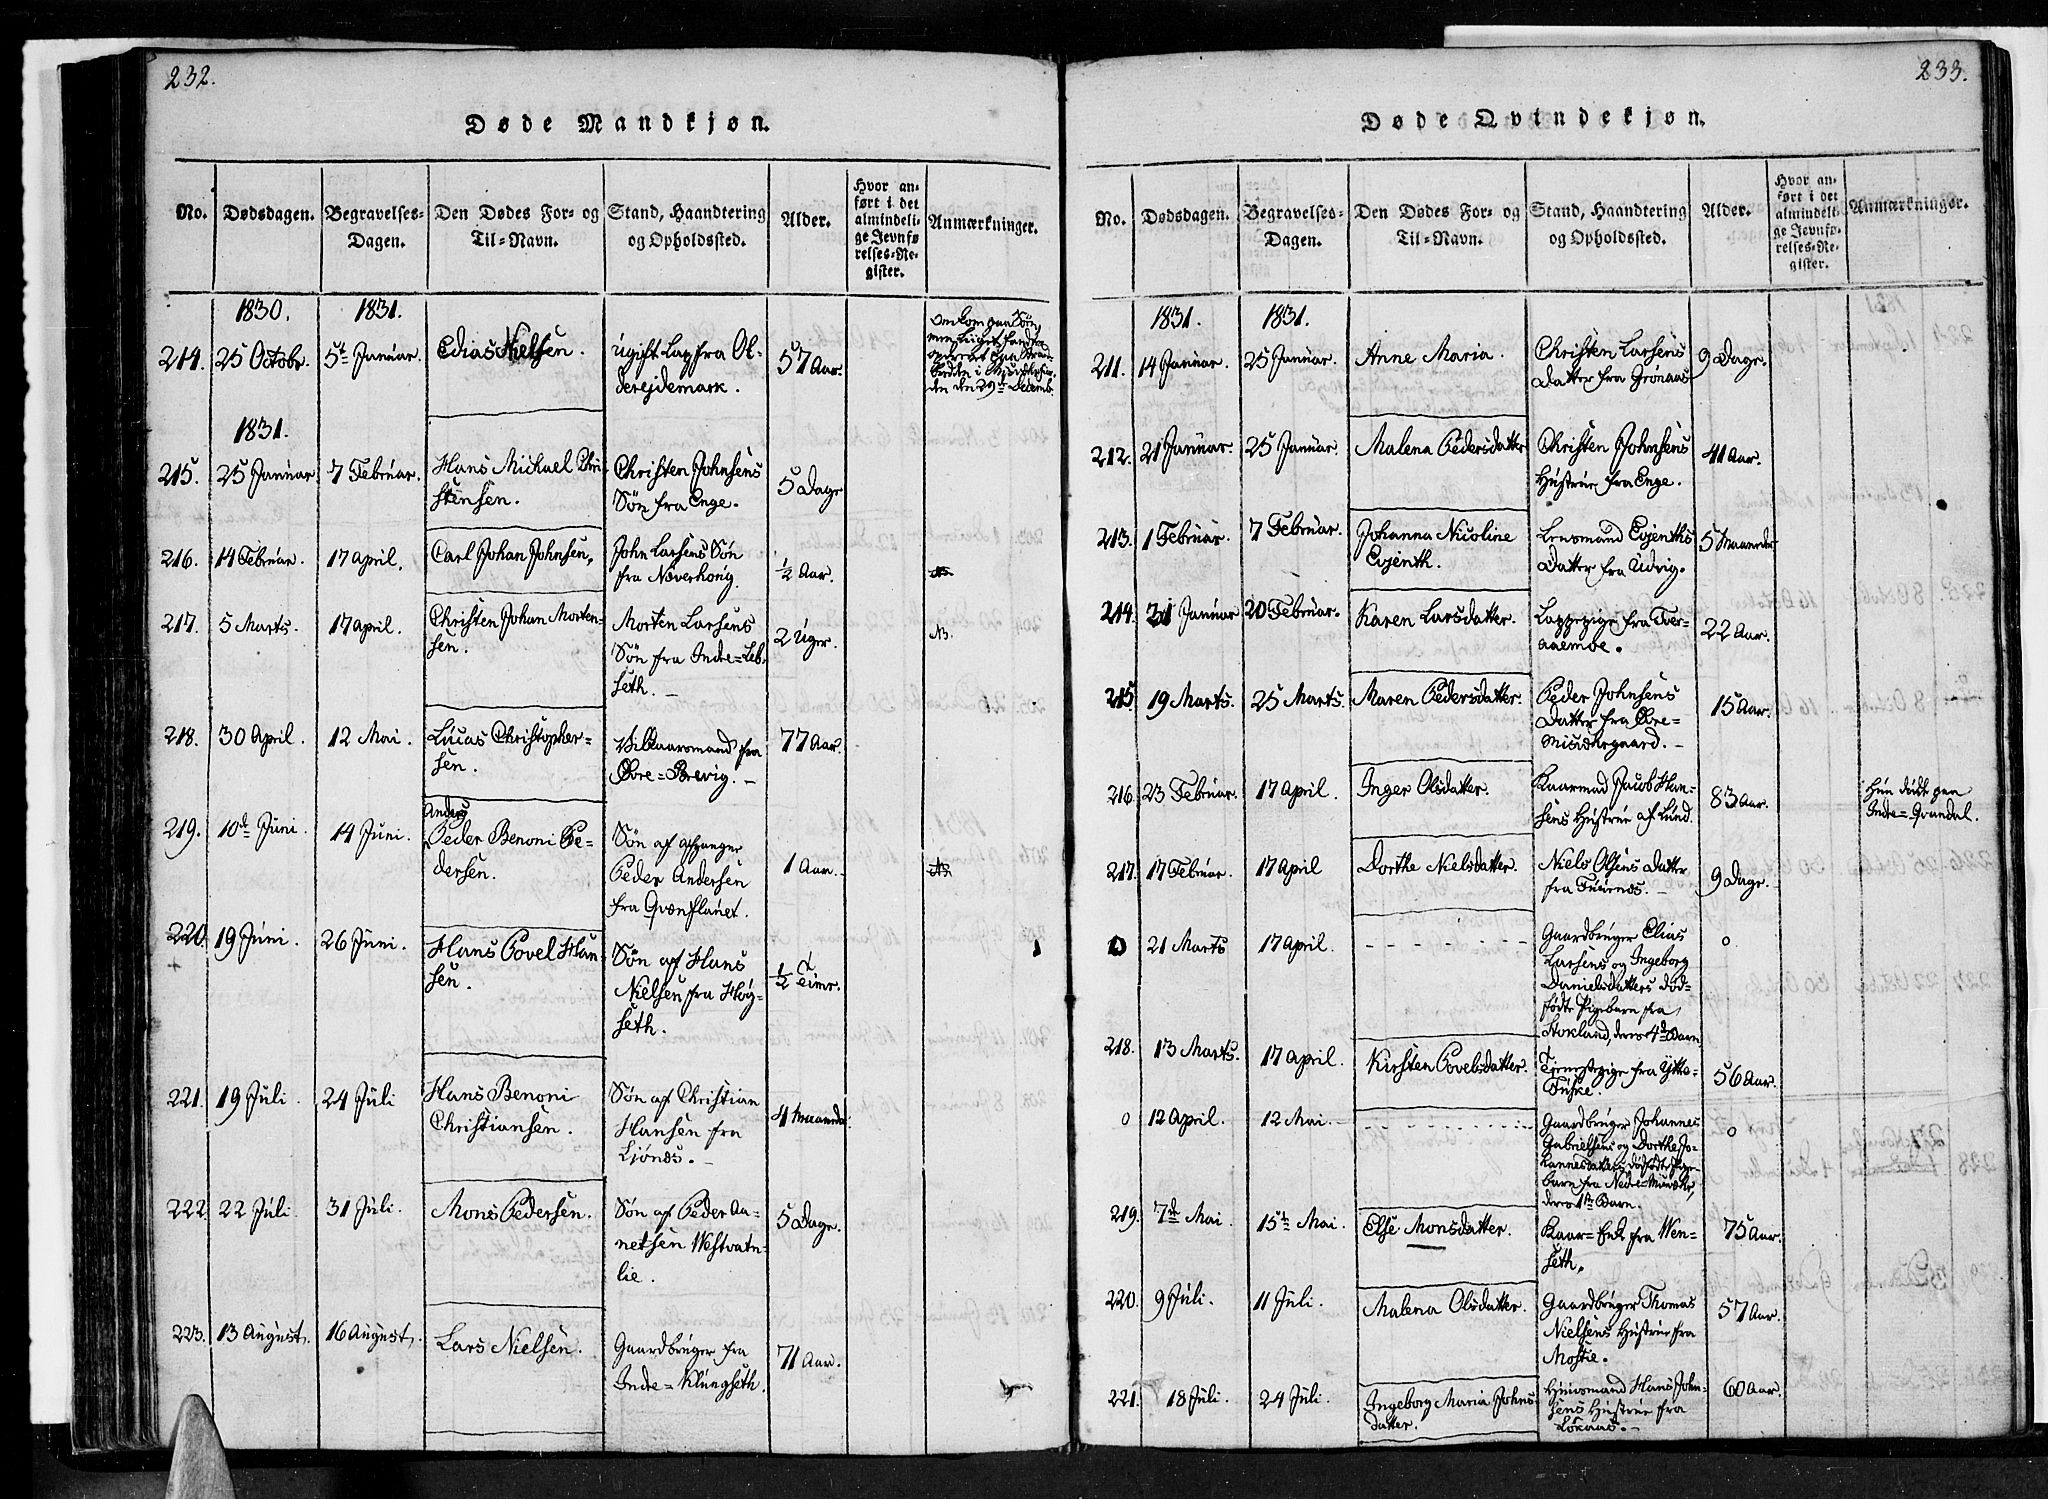 232.
Døde Mandkjøn.
No.
Dødsdagen.
Begravelses-
Dagen.
Den Dødes For- og
Til-Navn.
Stand, Haandtering
og Opholdssted.
Alder.
Hvor an-
ført i det
almindeli-
ge Jevnfø-
relses-Re-
gister.
Anmærkninger.
1830.
1831.
214.
25 Octobr.
5te Januar.
Elias Nielsen.
ugift Lap fra Ol-
derejdemark.
57 Aar.
den 29de Decemb.
1831.
215.
25 Januar
7 Februar.
Hans Michael Chri-
stensen.
Christen Johnsens
Søn fra Enge.
5 Dage
216.
14 Februar.
17 April.
Carl Johan Johnsen,
John Larsens Søn
fra Næverhoug.
1/2 Aar.
N.
217.
5 Marts.
17 April.
Christen Johan Morten-
sen.
Morten Larsens
Søn fra Indre-Leb-
seth. –
2 Uger.
N.
218.
30 April.
12 Mai.
Lucas Christopher-
sen.
Vilkaarsmand fra
Øvre-Brevig. –
77 Aar.
219.
10de Juni.
14 Juni.
Anders
Peder Benoni Pe-
dersen.
Søn af
Peder Andersen
fra Qvænflauet.
1 Aar.
N.
220.
19 Juni.
26 Juni.
Hans Povel Han-
sen.
Søn af Hans
Nielsen fra Høy-
seth.
1/2 Time.
221.
19 Juli.
24 Juli
Hans Benoni
Christiansen.
Søn af Christian
Hansen fra
Ljønes. –
4 Maaneder
222.
22 Juli.
31 Juli.
Mons Pedersen.
Søn af Peder Aa-
netsen Westvatn-
lie.
5 Dage.
223.
13 August.
16 August.
Lars Nielsen.
Gaardbruger fra
Indre-Klungseth.
71 Aar.
233.
Døde Qvindekjøn.
No.
Dødsdagen.
Begravelses-
Dagen.
Den Dødes For- og
Til-Navn.
Stand, Haandtering
og Opholdssted.
Alder.
Hvor an-
ført i det
almindeli-
ge Jevnfø-
relses-Re-
gister.
Anmærkninger.
1831.
1831.
211.
14 Januar.
25 Januar.
Anne Maria.
Christen Larsens
Datter fra Grønaas
9 Dage.
212.
21 Januar.
25 Januar.
Malena Pedersdatter
Christen Johnsens
Hustrue fra Enge.
41 Aar.
213.
1 Februar.
7 Februar.
Johanna Nicoline
Evjenth.
Lensmand Evjenths
Datter fra Udvig.
5 Maaneder
214.
31 Januar
20 Februar.
Karen Larsdatter.
Lappepige fra Tver-
aaemoe.
22 Aar.
215.
19 Marts.
25 Marts.
Maren Pedersdatter.
Peder Johnsens
Datter fra Øvre-
Misværgaard. –
15 Aar.
216.
23 Februar.
17 April.
Inger Olsdatter.
Kaarmad Jacob Han-
sens Hustrue af Lund.
83 Aar.
Hun døde paa
Indre-Qvandal.
217.
17 Februar.
17 April
Dorthe Nielsdatter.
Niels Olsens Datter
fra Tuvenes. –
9 Dage.
0
21 Marts
17 April.
- - - - - - -
Gaardbruger Elias
Larsens og Ingeborg
Danielsdatters død-
fødte Pigebarn fra
Stokland, deres 4de Barn.
0
218.
13 Marts.
17 April.
Kirsten Povelsdatter.
Tjenestepige fra Ytre-
Tuske.
56 Aar.
0
12 April.
12 Mai.
- - - - - - -
Gaardbruger Johannes
Gabrielsens og Dorthe Jo-
hannesdatters dødfødte Pige-
barn fra Nedre-Misvær,
deres 1ste Barn.
0
219.
7de Mai
15te Mai.
Else Monsdatter.
Kaar-Enke fra Wen-
seth.
75 Aar.
220.
9 Juli.
11 Juli.
Malena Olsdatter.
Gaardbruger Thomas
Nielsens Hustrue fra
Mostie.
57 Aar.
221.
18 Juli.
24 Juli.
Ingeborg Maria Johns-
datter.
Huusmand Hans John-
sens Hustrue fra
Løkaas. –
60 Aar.